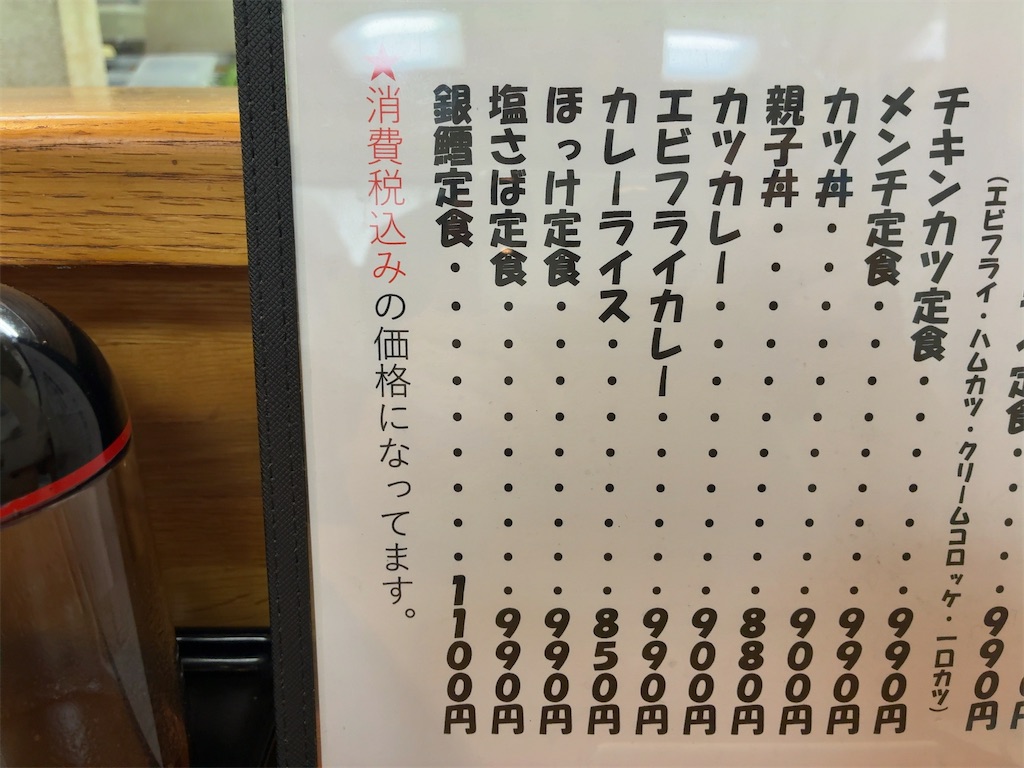 定食・・・・・990円
(エビフライ・ハムカツ・クリームコロッケ・一口カツ)
チキンカツ定食・・・・・・・990円
メンチ定食・・・・・・・・・990円
カツ丼・・・・・・・・・・・900円
親子丼・・・・・・・・・・・880円
カツカレー・・・・・・・・・900円
エビフライカレー・・・・・・990円
カレーライス・・・・・・・・850円
ほっけ定食・・・・・・・・・990円
塩さば定食・・・・・・・・・990円
銀鱈定食・・・・・・・・・1100円
★消費税込みの価格になってます。